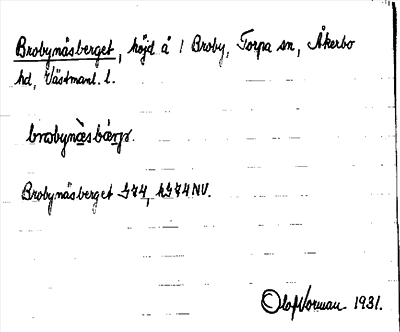 Brobynäsberget, höjd å 1 Broby, Torpa sn, Åkerbo
hd, Västmanl. l.
brobynä̀sbärjə.
Brobynäsberget J74, hJ74NV.
Olof Norman 1931.